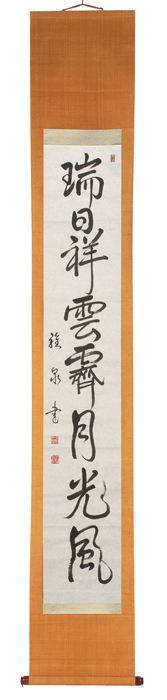 瑞日祥雲霽月光風
泉書